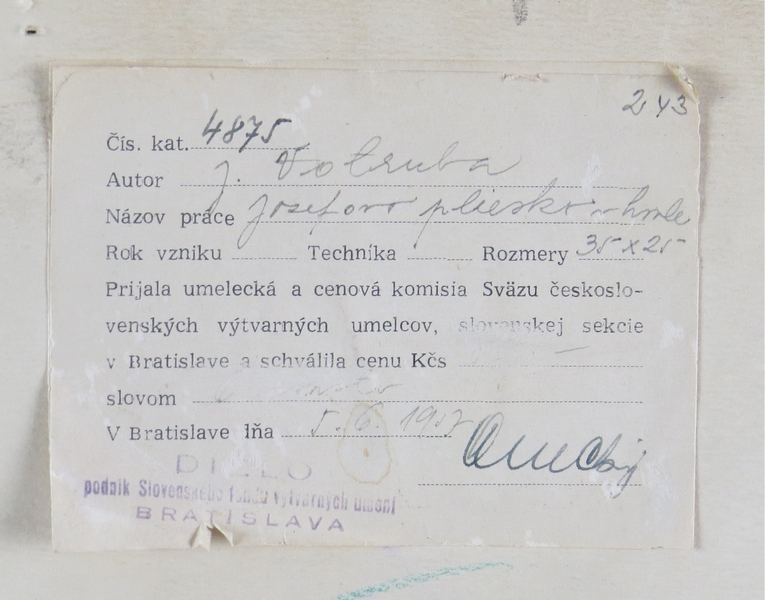 243
Čís. kat. 4875
Autor J. Votruba
Názov práce Josefovo pliesko v hmle
Rok vzniku Technika Rozmery 35x25
Prijala umelecká a cenová komisia Sväzu českoslo-
venských výtvarných umelcov, slovenskej sekcie
v Bratislave a schválila cenu Kčs
slovom
V Bratislave lňa 5.6. 1957
DIELO
podnik Slovenského fondu výtvarných umení
BRATISLAVA